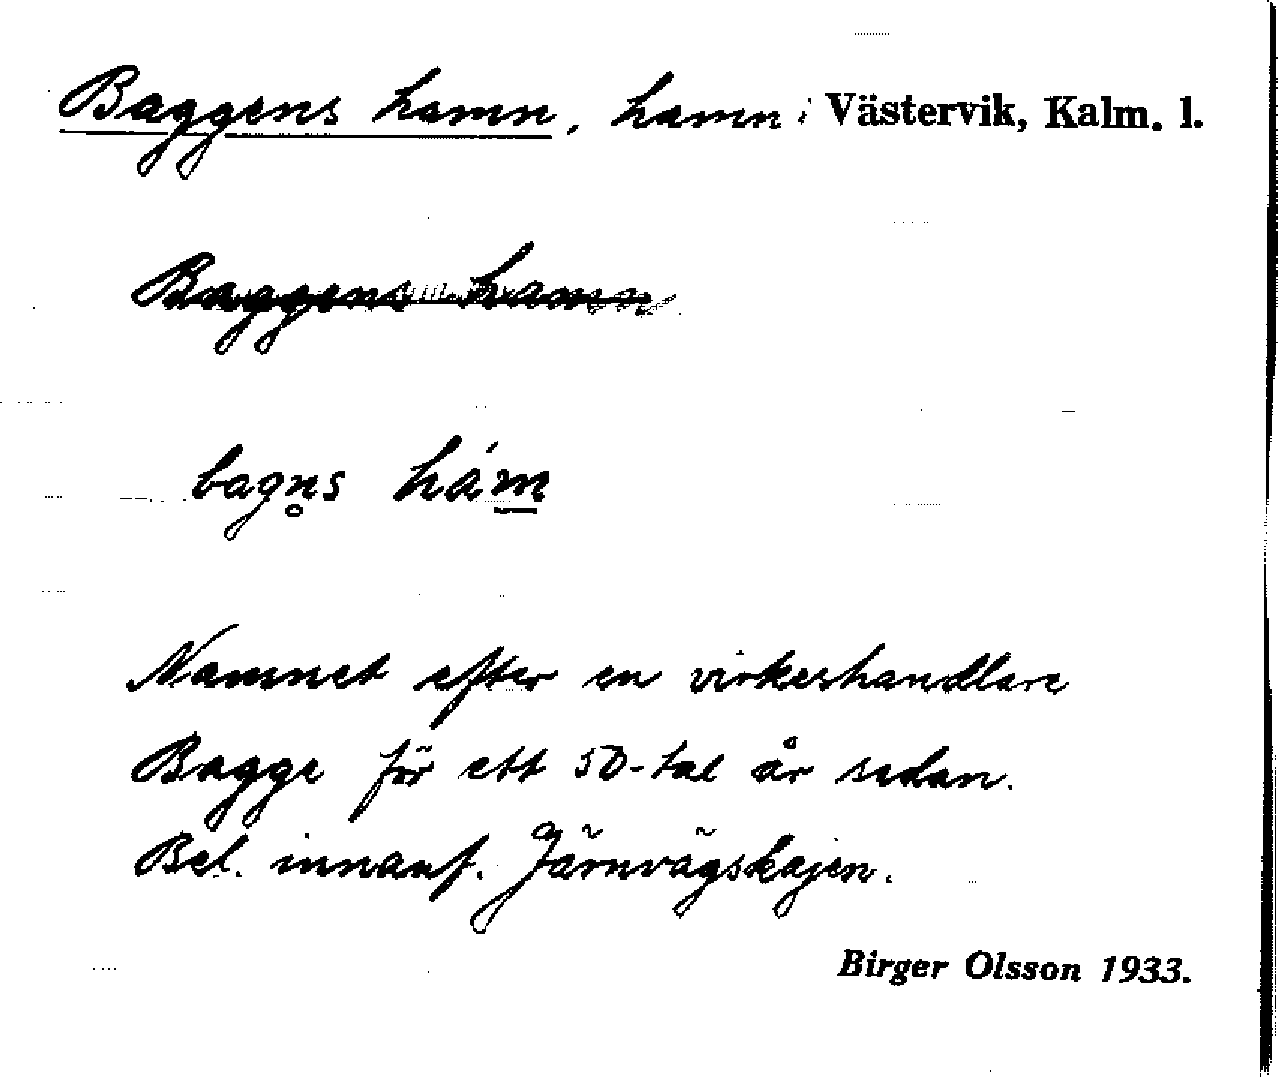 Baggens hamn, hamn i Västervik, Kalm. l.
Baggens hamn
bagn̥s hám̲
Namnet efter en virkeshandlare
Bagge för ett 50-tal år sedan.
Bel. innanf. Järnvägskajen.
Birger Olsson 1933.